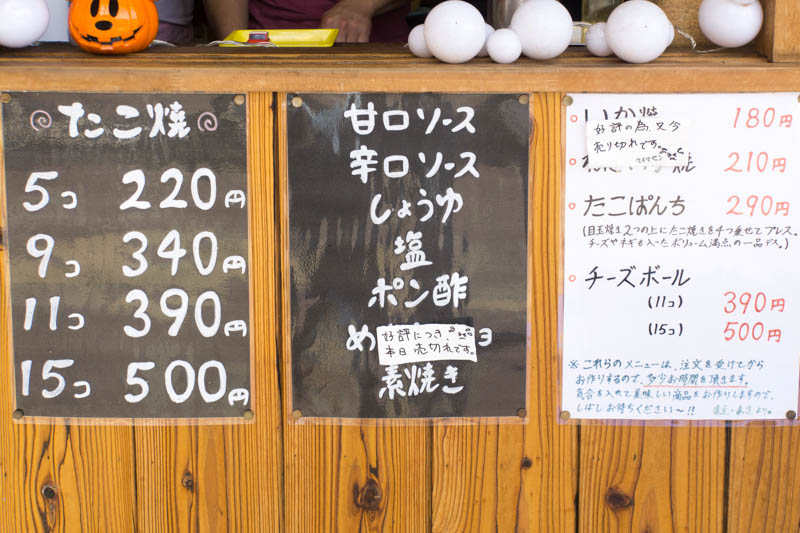 たこ焼
5コ 220円
9コ 340円
11コ 390円
15コ 500円
甘口ソース
辛口ソース
しょうゆ
塩
ポン酢
め
好評につき
本日売切れです。
素焼き
いか焼 180円
好評の為、又今
売り切れです。
焼 210円
たこぱんち 290円
(目玉焼き2つの上にたこ焼きを4つ乗せてプレス。
チーズやネギも入ったボリューム満点の一品デス。)
チーズボール
(11コ) 390円
(15コ) 500円
※これらのメニューは、注文を受けてから
お作りするので、多少お時間を頂きます。
気合を入れて美味しい商品をお作りしますので、
しばしお待ちください〜!!